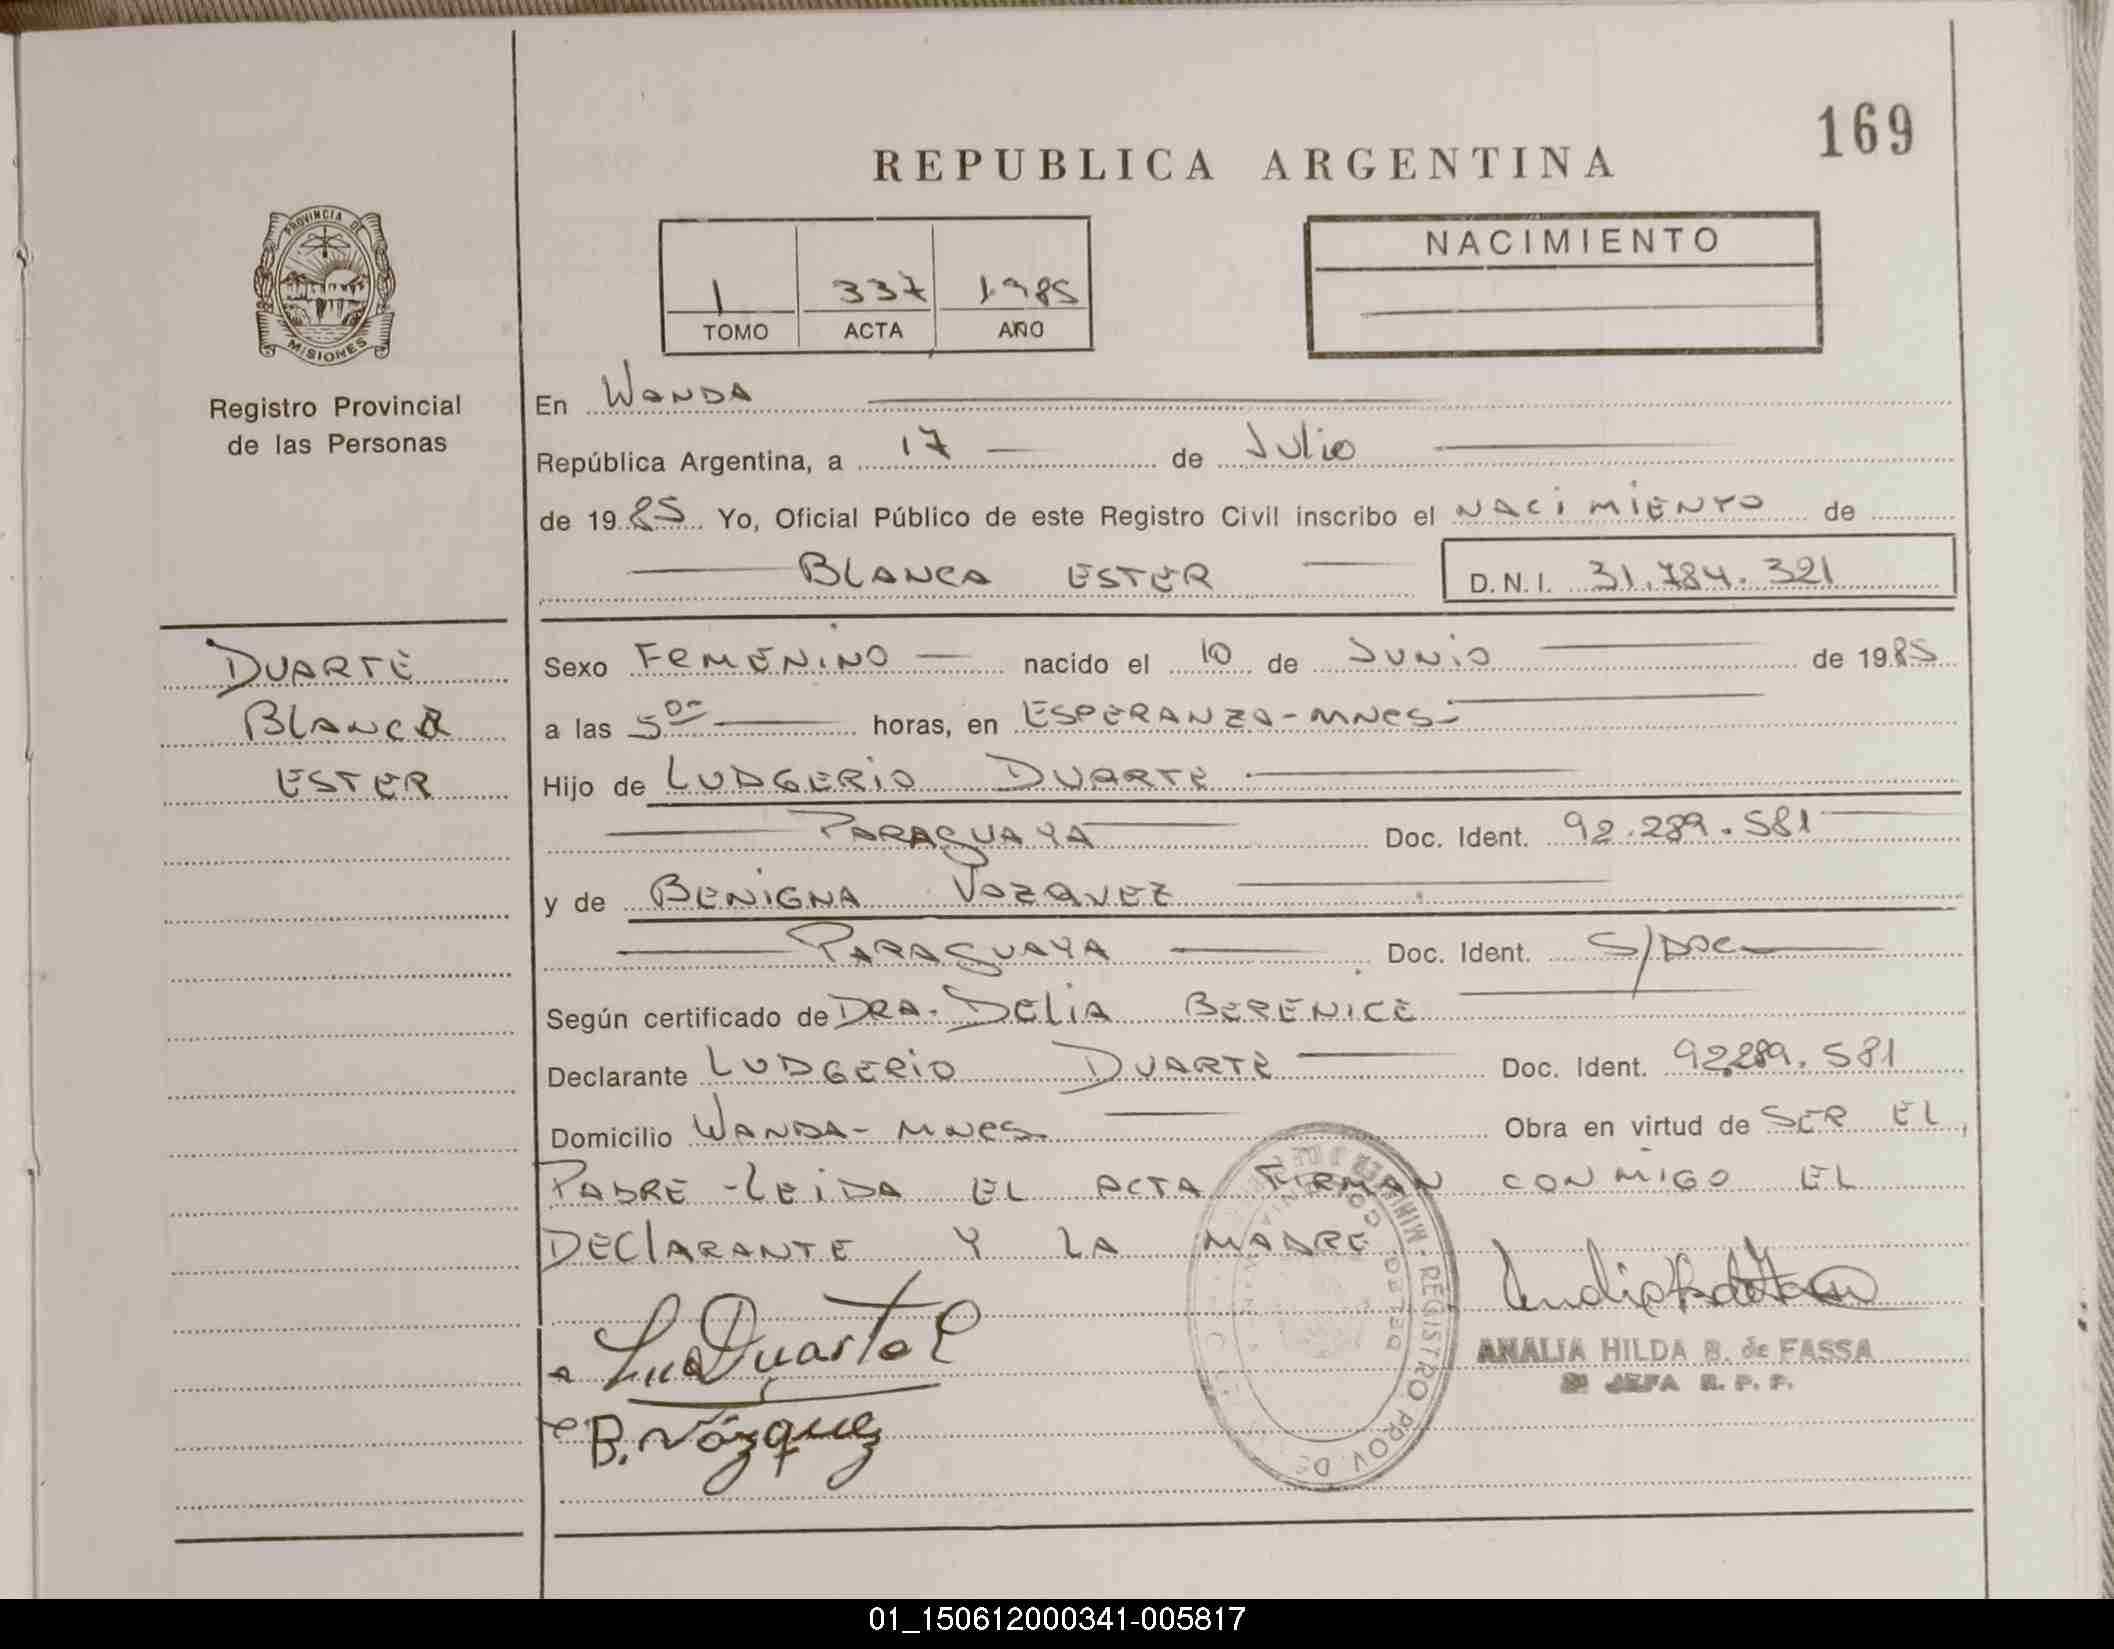 169
REPUBLICA ARGENTINA
PROVINCIA DE
MISIONES
Registro Provincial
de las Personas
1 337 1985
TOMO ACTA AÑO
NACIMIENTO
En WANDA
República Argentina, a 17 de Julio
de 1985 Yo, Oficial Público de este Registro Civil inscribo el NACIMIENTO de
BLANCA ESTER D.N.I. 31.784.321
DUARTE
BLANCA
ESTER
Sexo FEMENINO nacido el 10 de JUNIO de 1985
a las 5 00 horas, en ESPERANZA-MNES-
Hijo de LUDGERIO DUARTE
PARAGUAYA Doc. Ident. 92.289.581
y de BENIGNA VAZQUEZ
PARAGUAYA Doc. Ident. S/DOC
Según certificado de DRA. DELIA BERENICE
Declarante LUDGERIO DUARTE Doc. Ident. 92.289.581
Domicilio WANDA-MNES. Obra en virtud de SER EL
PADRE-LEIDA EL ACTA FIRMAN CONMIGO EL
DECLARANTE Y LA MADRE
B. Vázquez
REGISTRO PROV. DE
ANALIA HILDA B. de FASSA
JEFA R. P. P.
01_150612000341-005817